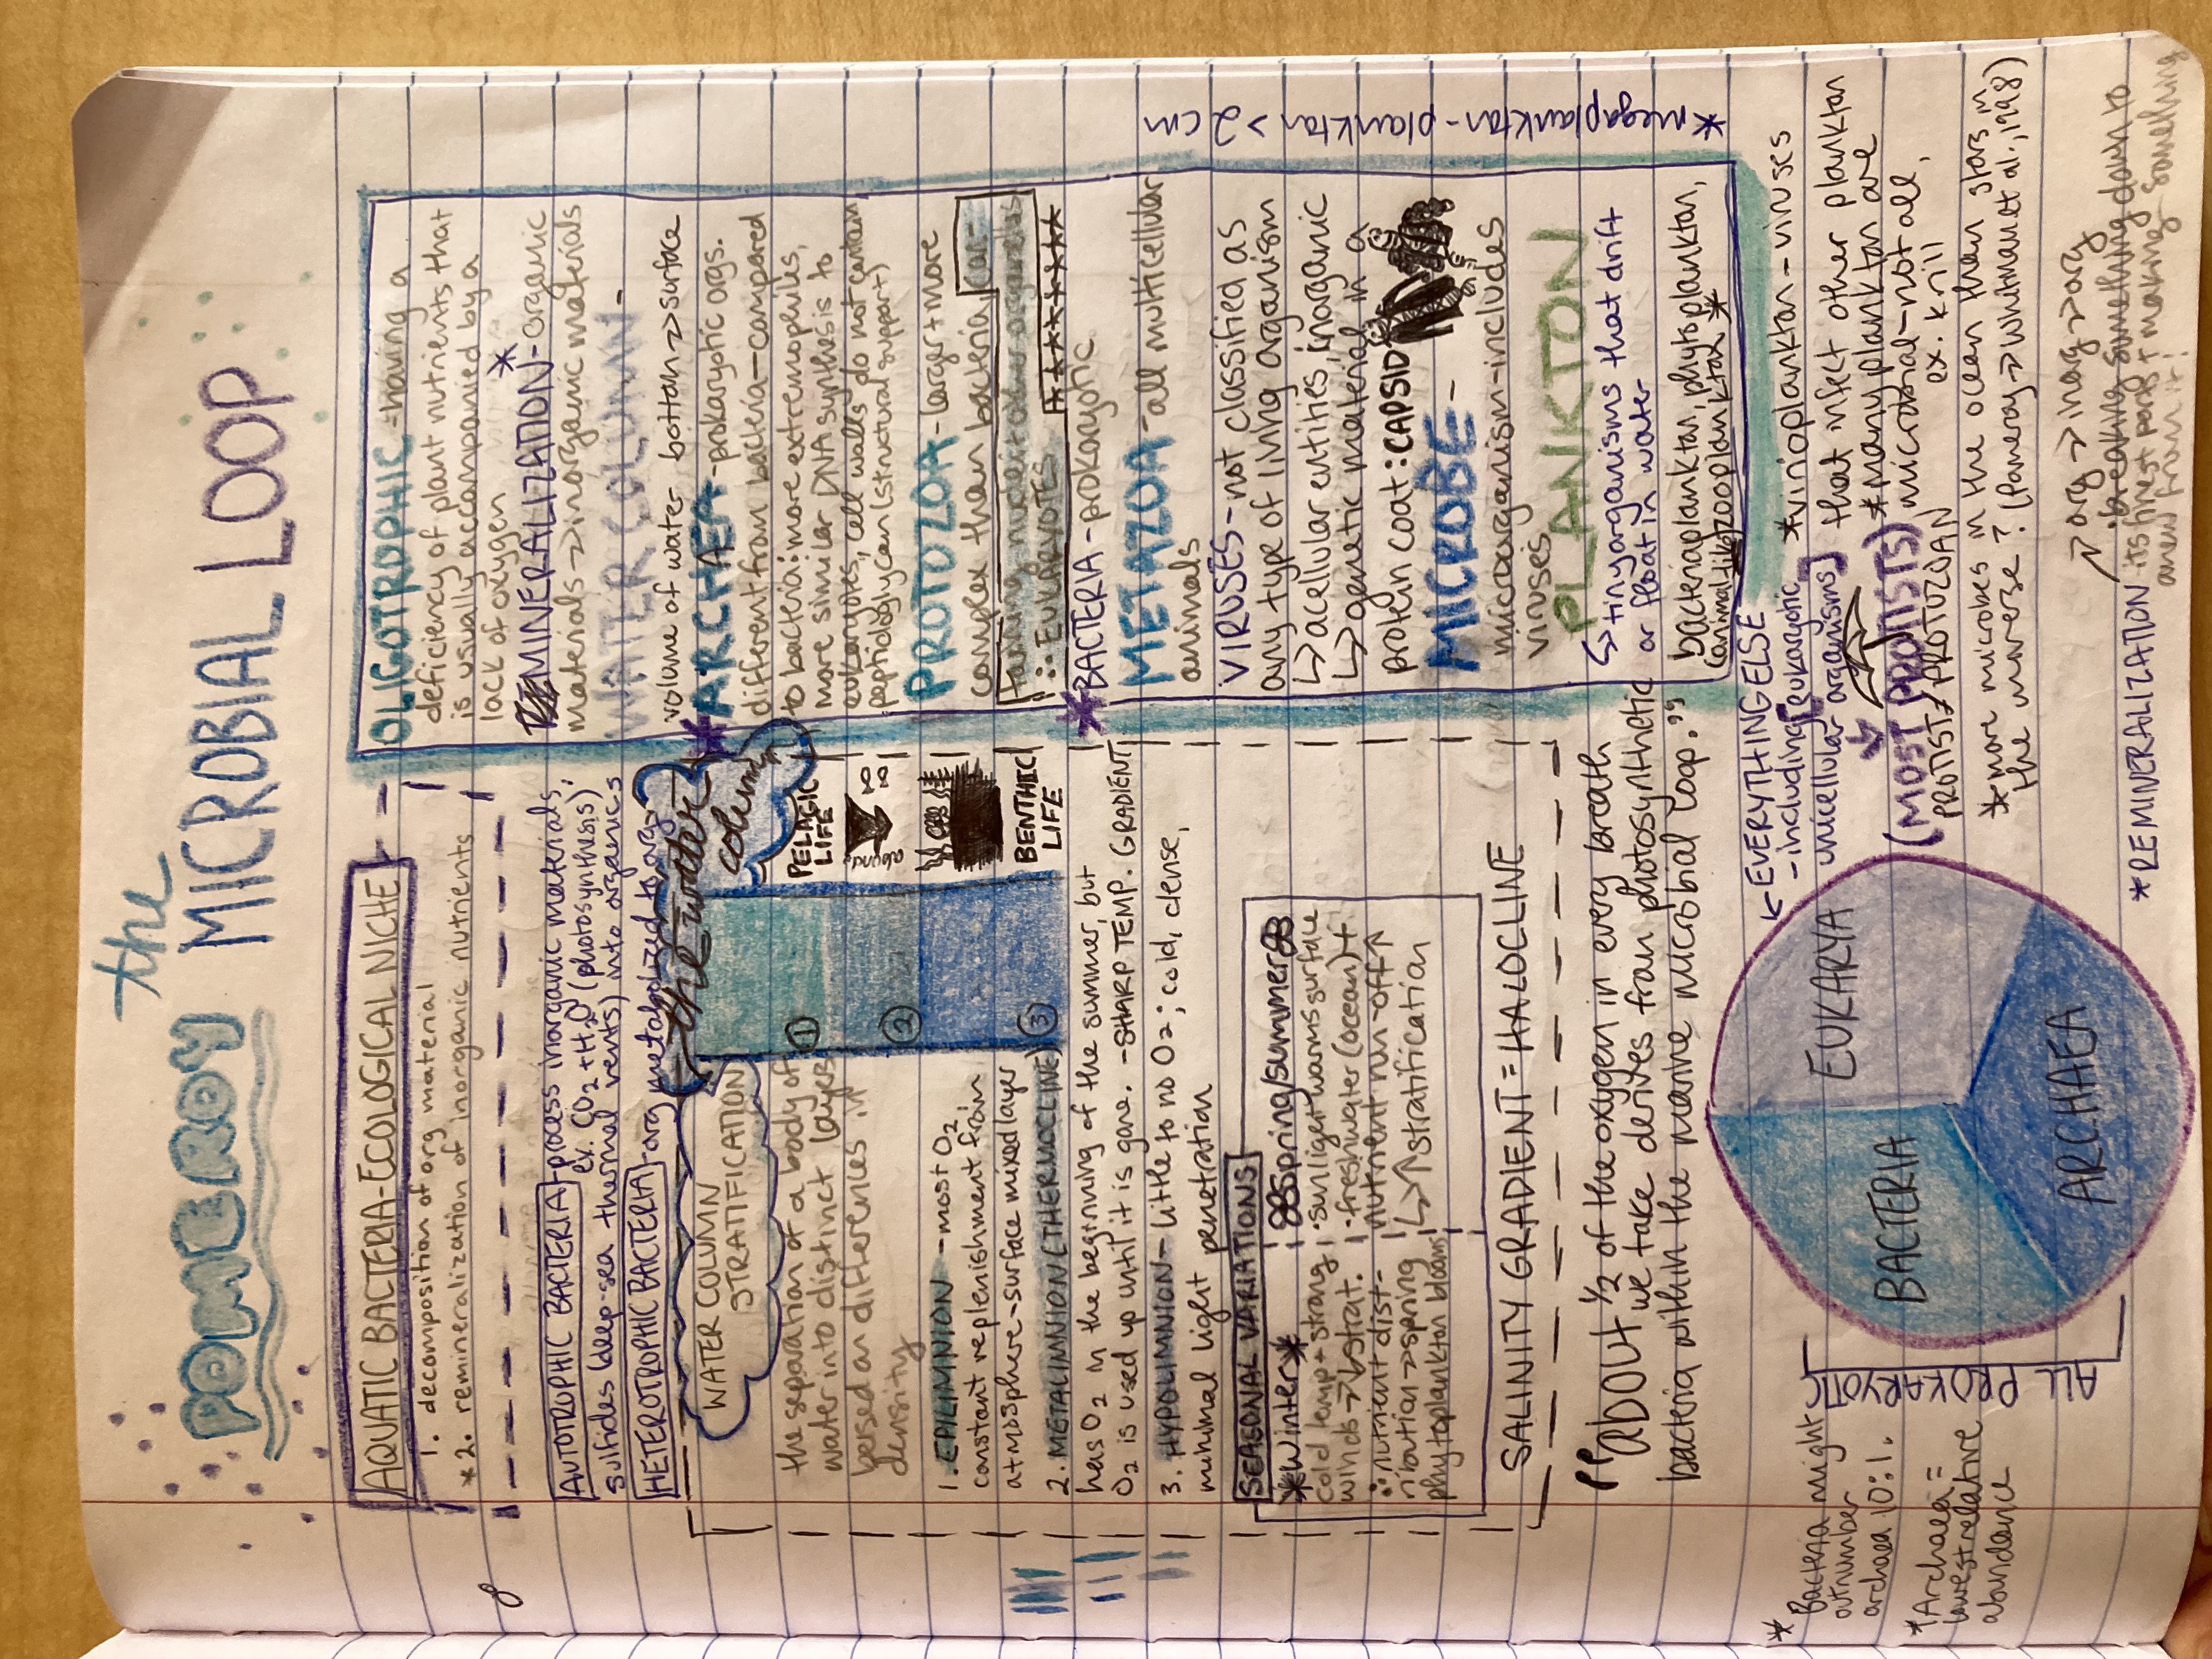 the
POMEROY MICROBIAL LOOP
AQUATIC BACTERIA-ECOLOGICAL NICHE
1. decomposition of org material
*2. remineralization of inorganic nutrients
AUTOTROPHIC BACTERIA-process inorganic materials,
ex. CO2 + H2O (photosynthesis)
sulfides (deep-sea thermal vents) into organics
HETEROTROPHIC BACTERIA-org metabolized to org
the water
column
WATER COLUMN
STRATIFICATION
the separation of a body of
water into distinct layers
based on differences in
density
1
2
3
PELAGIC
LIFE
BENTHIC
LIFE
1. EPILIMNION -most O2,
constant replenishment from
atmosphere-surface mixed layer
2. METALIMNION (THERMOCLINE)
has O2 in the beginning of the summer, but
O2 is used up until it is gone. -SHARP TEMP. GRADIENT
3. HYPOLIMNION- little to no O2; cold, dense,
minimal light penetration
SEASONAL VARIATIONS
*Winter*
cold temp + strong
winds → ↓strat.
∴ nutrient dist-
ribution → spring
phytoplankton blooms
Spring/summer
·sunlight warms surface
·freshwater (ocean) +
nutrient run-off ↑
↳ ↑ stratification
SALINITY GRADIENT = HALOCLINE
"About 1/2 of the oxygen in every breath
we take derives from photosynthetic
bacteria within the marine microbial loop."
OLIGOTROPHIC -having a
deficiency of plant nutrients that
is usually accompanied by a
lack of oxygen
*
MINERALIZATION- organic
materials → inorganic materials
WATER COLUMN-
volume of water bottom → surface
*ARCHAEA -prokaryotic orgs.
different from bacteria-compared
to bacteria: more extremophiles,
more similar DNA synthesis to
eukaryotes, cell walls do not contain
peptidoglycan (structural support)
PROTOZOA -larger + more
complex than bacteria, con-
taining nuclei + other organelles
∴ EUKARYOTES ********
*BACTERIA -prokaryotic
METAZOA -all multicellular
animals
VIRUSES-not classified as
any type of living organism
↳ acellular entities, inorganic
↳ genetic material in a
protein coat: CAPSID
MICROBE-
microorganism-includes
viruses
PLANKTON
↳ tiny organisms that drift
or float in water
bacterioplankton, phytoplankton,
(animal-like) zooplankton *
*megaplankton-plankton > 2cm
BACTERIA
EUKARYA
ARCHAEA
ALL PROKARYOTIC
*
Bacteria might
outnumber
archaea 10:1.
*Archaea =
lowest relative
abundance
← EVERYTHING ELSE
-including [eukaryotic
unicellular organisms]
(MOST PROTISTS)
PROTIST ≠ PROTOZOAN
*virioplankton - viruses
that infect other plankton
*many plankton are
microbial-not all,
ex. krill
*more microbes in the ocean than stars in
the universe? (Pomeroy → Whitman et al., 1998)
*REMINERALIZATION
org → inorg → org
:breaking something down to
its finest parts + making something
anew from it!